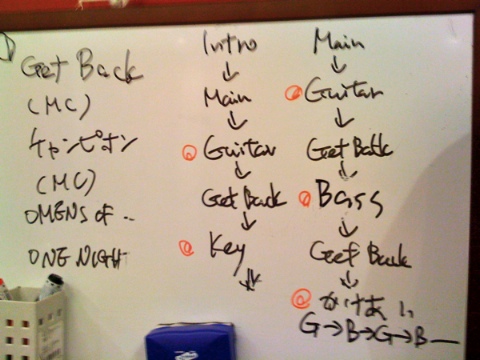 Get Back
(MC)
チャンピオン
(MC)
OMENS OF ..
ONE NIGHT
Intro
↓
Main
↓
Guitar
↓
Get Back
↓
Key
↓
Main
↓
Guitar
↓
Get Back
↓
Bass
↓
Get Back
↓
かけあい
G→B→G→B―